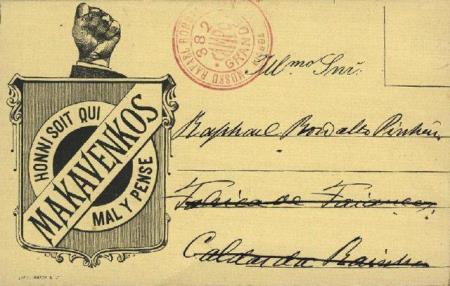 HONNI SOIT QUI
MAKAVENKOS
MAL Y PENSE
882
CAMPO GRANDE
Illmo Snr.
Raphael Bordallo Pinheiro
Fabrica de Faianças
Caldas da Rainha